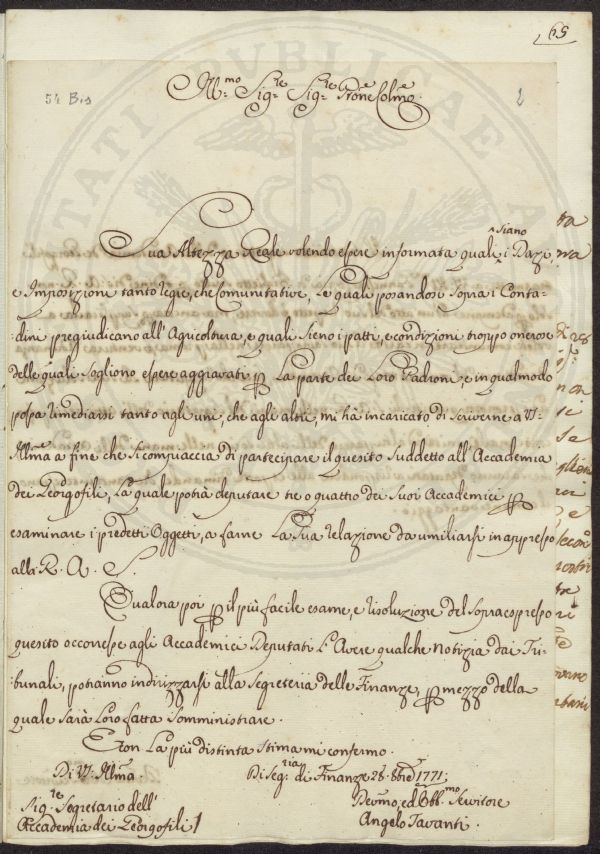 65
54 Bis
2
Ill:mo Sig:re Sig:re Prõne Colmo.
Sua Altezza Reale volendo essere informata quali siano i Dazi,
e Imposizioni tanto Regie, che Comunitative, Le quali posandosi Sopra i Conta-
:dini pregiudicano all'Agricoltura, e quali Sieno i patti, e condizioni troppo onerose
delle quali Sogliono essere aggravati p La parte dei Loro Padroni e in qual modo
possa Rimediarsi tanto agli uni, che agli altri, mi hà incaricato di Scriverne a V.
Illma a fine che Si compiaccia di partecipare il quesito Suddetto all'Accademia
dei Georgofili, La quale potrà deputare tre o quattro dei Suoi Accademici p
esaminare i predetti Oggetti, a farne La Sua relazione da umiliarsi in appresso
alla R. A. S.
Qualora poi p il più facile esame, e risoluzione del Sopraespresso
quesito occoresse agli Accademici Deputati L'Avere qualche Notizia dai Tri-
:bunali, potranno indirizzarsi alla Segreteria delle Finanze, p mezzo della
quale Sarà Loro fatta Somministrare.
E con La più distinta Stima mi confermo.
Di V. Illma.
Di Seg:ria di Finanze 28. 8bre 1771;
Sig:re Segretario dell'
Devmo, ed Obb:mo Servitore
Accademia dei Georgofili
Angelo Tavanti.